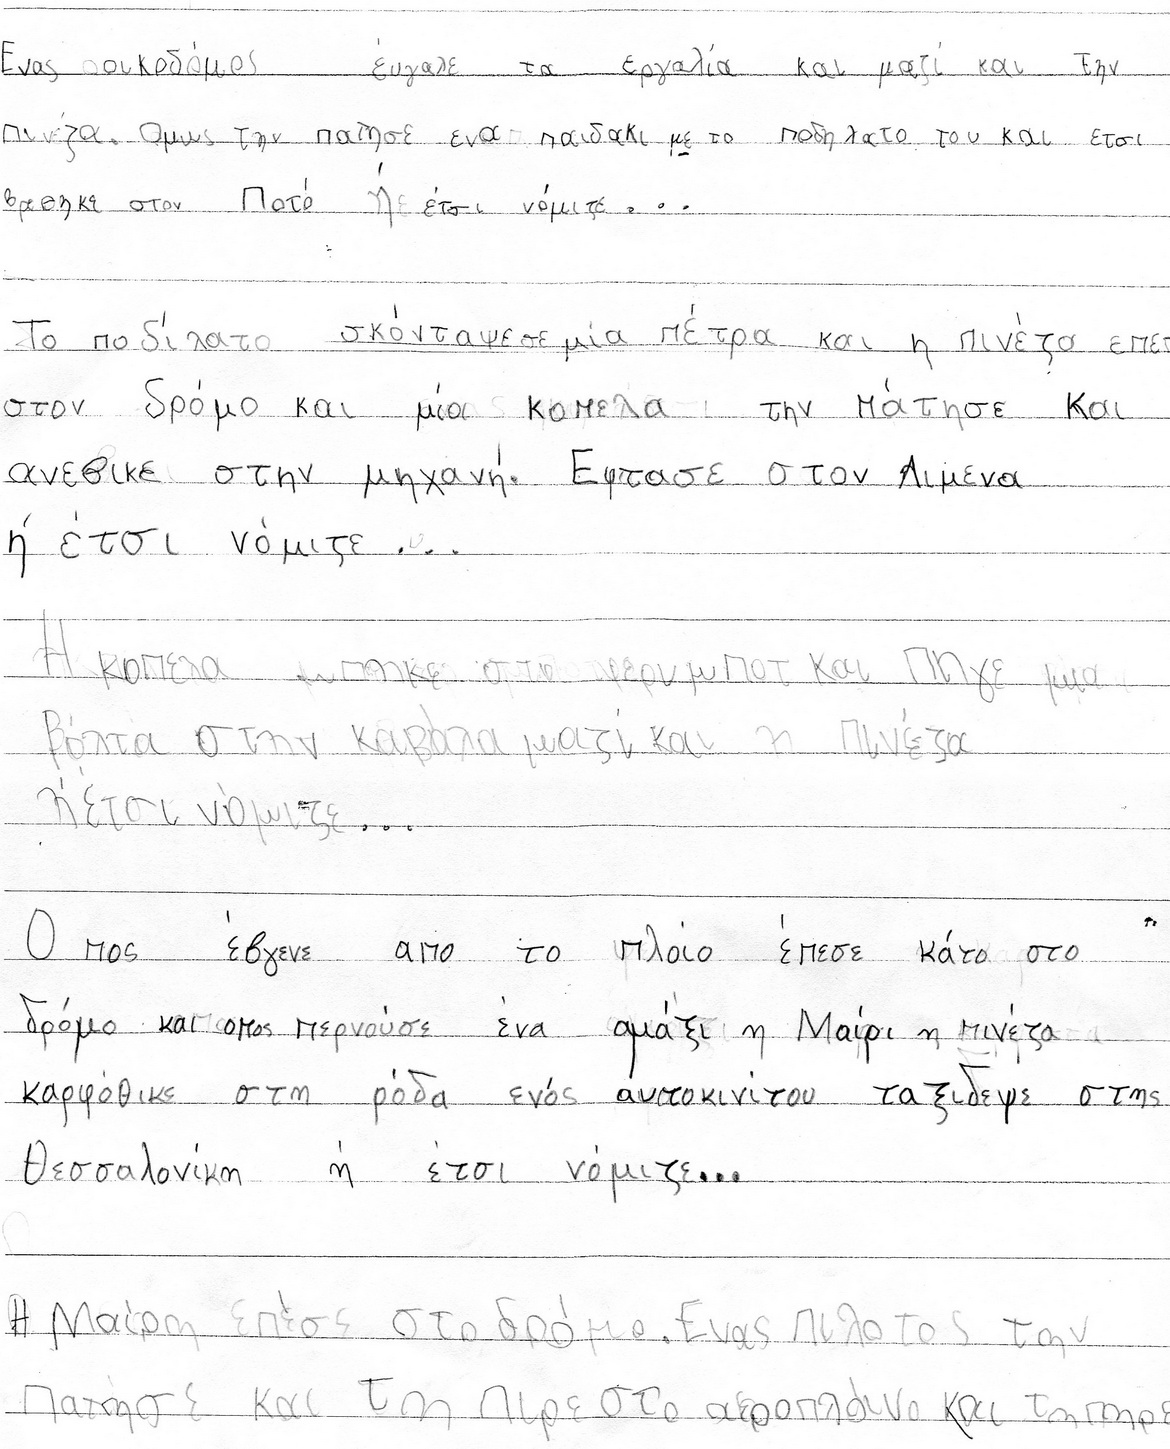 Ενας οικοδόμος έυγαλε τα εργαλία και μαζί και την
πινέζα. Ομως την πατησε ενα παιδακι με το ποδηλατο του και ετσι
βρεθηκε στον Ποτό ή έτσι νόμιζε...
Το ποδίλατο σκόνταψεσε μία πέτρα και η πινέζα επεσ
στον δρόμο και μία κοπελα την πάτησε και
ανεθικε στην μηχανή. Εφτασε στον Λιμενα
ή έτσι νόμιζε...
Η κοπελα μπηκε στο φερυμποτ και Πηγε μια
βόλτα στην καβάλα μαζί και η πινέζα
ή έτσι νόμιζε...
Ο πος έβγενε απο το πλοίο έπεσε κάτο στο
δρόμο και οπος περνούσε ένα αμάξι η Μαίρι η πινέζα
καρφόθικε στη ρόδα ενός αυτοκινίτου ταξιδεψε στης
Θεσσαλονίκη ή έτσι νόμιζε...
Η Μαίρη επέσε στο δρόμο. Ενας πιλοτος την
πατησε και τη πιρε στο αεροπλάνο και τη πηρε